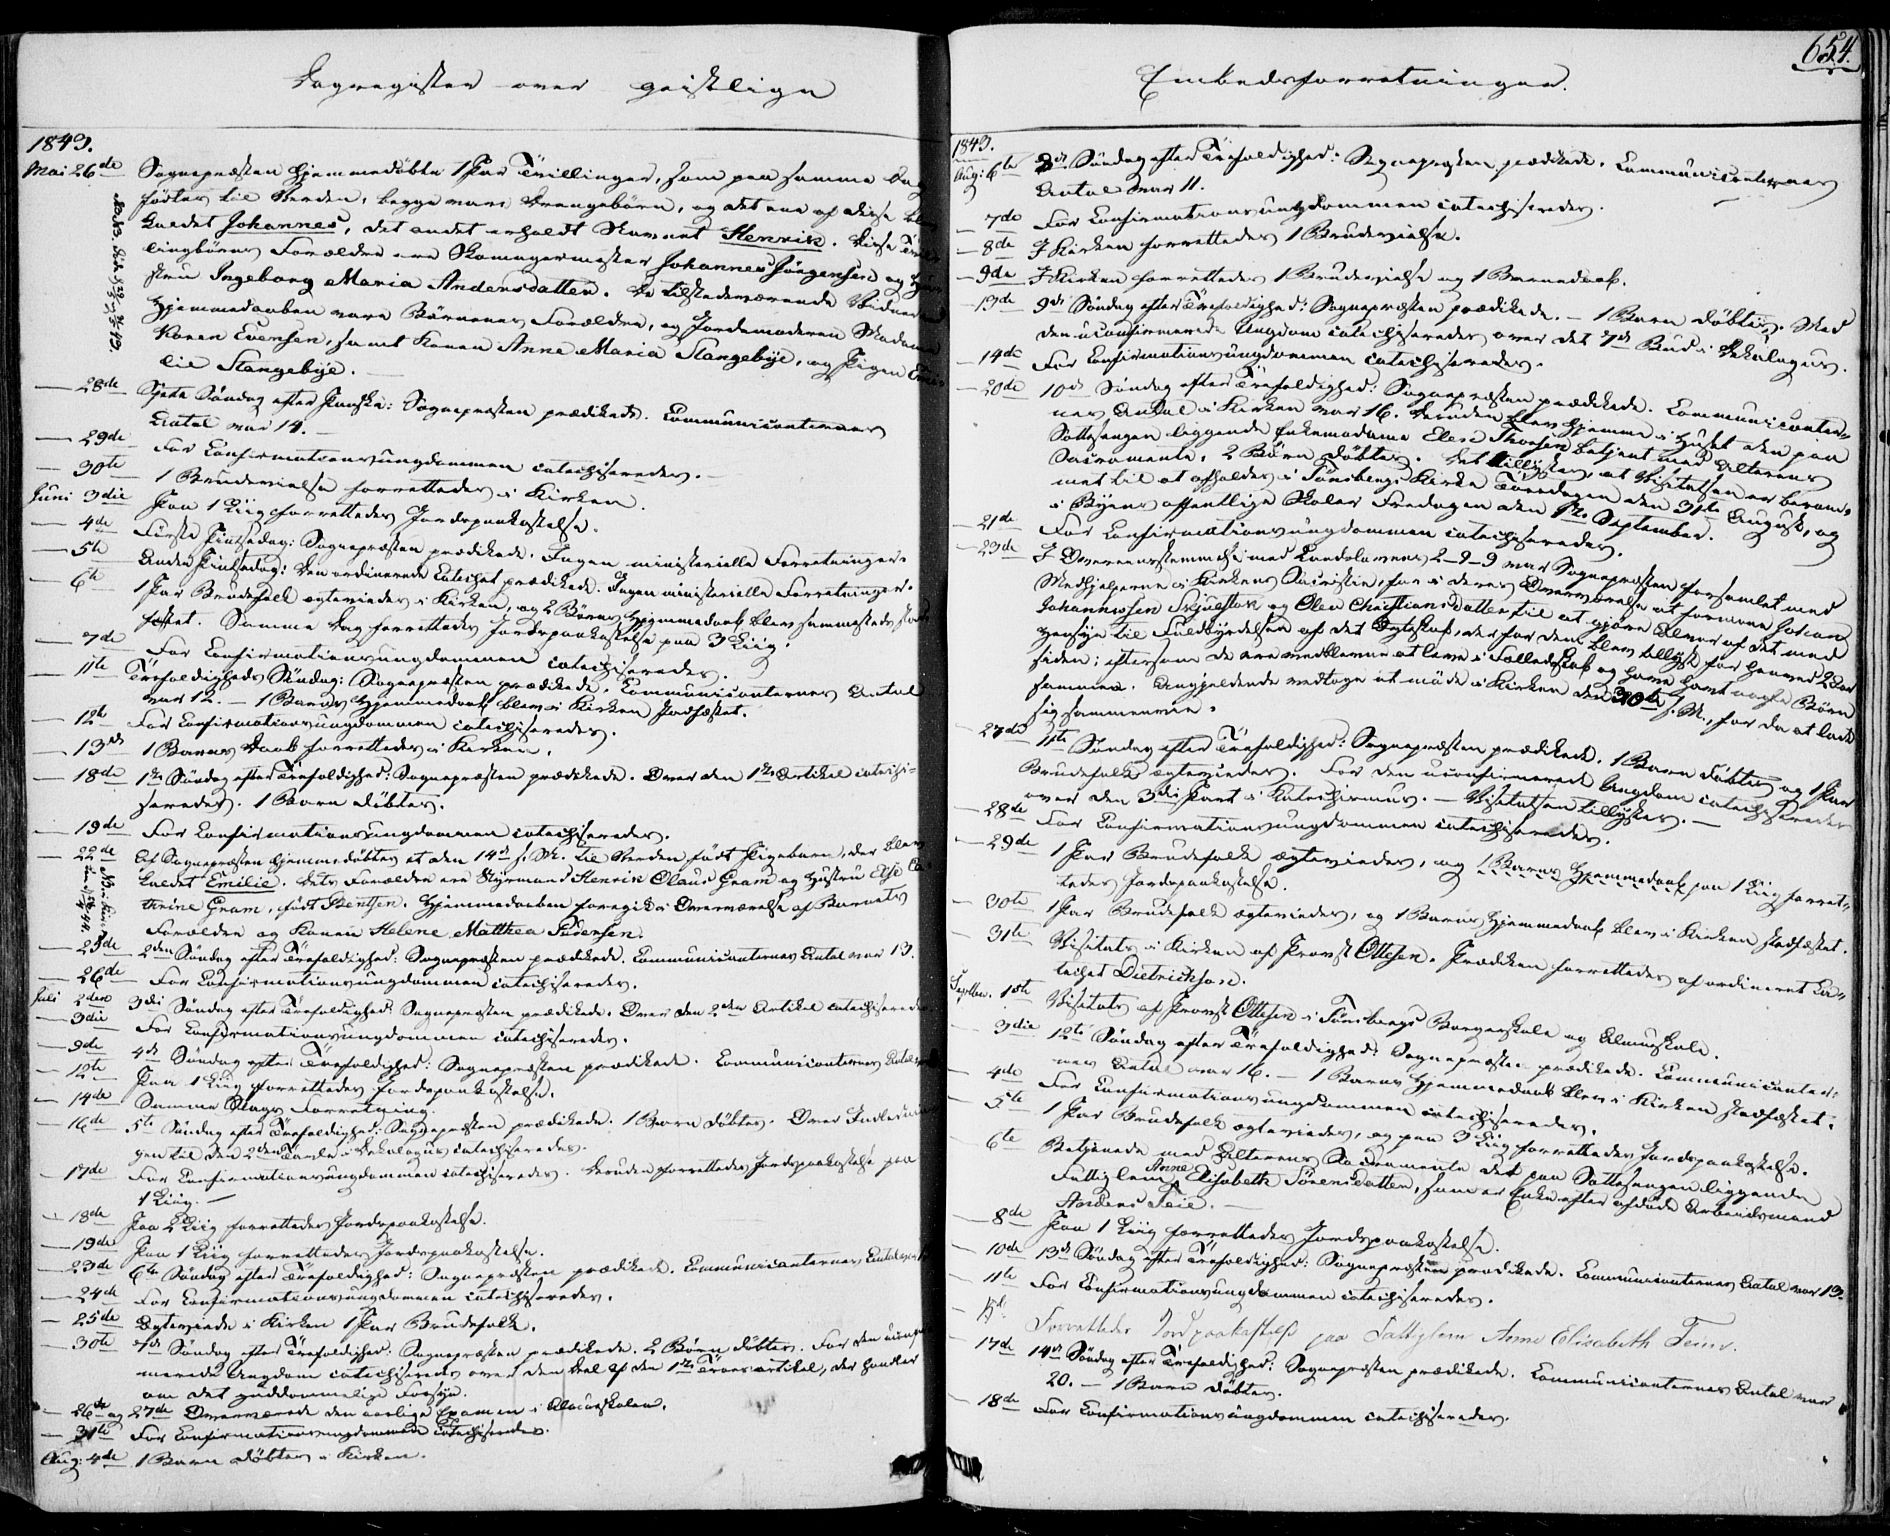 Dagregister over geistlige
1843.
Mai 26de Sognepræsten hjemmedøbte 1 Par Tvillinger, som paa samme Dag
fødtes til Verden, begge vare Drengebørn, og det ene af disse blev
kaldet Johannes, det andet erholdt Navnet Henrik. Disse Tvil-
lingbørns Forældre ere Skomagermester Johannes Jörgensen og Hu-
stru Ingeborg Maria Andersdatter. De tilstedeværende Vidner ved
Hjemmedaaben vare Børnenes Forældre, og Jordemoderen Madame
Karen Evensen, samt Konen Anne Maria Slangebye, og Pigen Emi-
lie Slangebye. —
— 28de Sjette Søndag efter Paaske: Sognepræsten prædikede. Communicanternes
Antal var 14. —
— 29de For Confirmationsungdommen catechiseredes. —
— 30te 1 Brudevielse forrettedes i Kirken.
Juni 3die Paa 1 Liig forrettedes Jordspaakastelse.
— 4de Første Pintsedag: Sognepræsten prædikede. Ingen ministerielle Forretninger.
— 5te Anden Pintsedag: Den ordinerede Catechet prædikede. Ingen ministerielle Forretninger.
— 6te 1 Par Brudefolk ægteviedes i Kirken, og 2 Børns Hjemmedaab blev sammesteds stad-
fæstet. Samme Dag forrettedes Jordspaakastelse paa 3 Liig.
— 7de For Confirmationsungdommen catechiseredes.
— 11te Trefoldigheds Søndag: Sognepræsten prædikede. Communicanternes Antal
var 12. — 1 Barns Hjemmedaab blev i Kirken stadfæstet.
— 12te For Confirmationsungdommen catechiseredes.
— 13de 1 Barns Daab forrettedes i Kirken.
— 18de 1ste Søndag efter Trefoldighed: Sognepræsten prædikede. Over den 1ste Artikel catechi-
seredes. 1 Barn døbtes.
— 19de For Confirmationsungdommen catechiseredes.
— 22de Af Sognepræsten hjemmedøbtes et den 14de s. M. til Verden født Pigebarn, der blev
kaldet Emilie. Dets Forældre ere Styrmand Henrik Olaus Gram og Hustru Else Ca-
thrine Gram, født Bentsen. Hjemmedaaben foregik i Overværelse af Barnets
Forældre og Konen Helene Matthea Sörensen.
— 25de 2den Søndag efter Trefoldighed: Sognepræsten prædikede. Communicanternes Antal var 13.
— 26de For Confirmationsungdommen catechiseredes.
Juli 2den 3die Søndag efter Trefoldighed: Sognepræsten prædikede. Over den 2den Artikel catechiseredes
— 3die For Confirmationsungdommen catechiseredes.
— 9de 4de Søndag efter Trefoldighed: Sognepræsten prædikede. Communicanternes Antal
— 12te Paa 1 Liig forrettedes Jordspaakastelse.
— 14de Samme Slags Forretning.
— 16de 5te Søndag efter Trefoldighed: Sognepræsten prædikede. 1 Barn døbtes. Over Indlednin-
gen til den 2den Tavle i Dekalogus catechiseredes.
— 17de For Confirmationsungdommen catechiseredes. Desuden forrettedes Jordspaakastelse paa
1 Liig. —
— 18de Paa 2 Liig forrettedes Jordspaakastelse.
— 19de Paa 1 Liig forrettedes Jordspaakastelse.
— 23de 6te Søndag efter Trefoldighed: Sognepræsten prædikede. Communicanternes Antal
— 24de For Confirmationsungdommen catechiseredes.
— 25de Ægteviede i Kirken 1 Par Brudefolk.
— 30te 7de Søndag efter Trefoldighed: Sognepræsten prædikede. 2 Børn døbtes. For den uconfir-
merede Ungdom catechiseredes over den Deel af den 1ste Troesartikel, der handler
om det guddommelige Forsyn.
— 26de og 27de Overværede den aarlige Examen i Almueskolen.
— 31te For Confirmationsungdommen catechiseredes.
Aug: 4de 1 Barn døbtes i Kirken.
Embedsforretninger.
654.
1843.
Aug: 6te 8de Søndag efter Trefoldighed: Sognepræsten prædikede. Communicanternes
Antal var 11.
— 7de For Confirmationsungdommen catechiseredes.
— 8de I Kirken forrettedes 1 Brudevielse.
— 9de I Kirken forrettedes 1 Brudevielse og 1 Barnedaab.
— 13de 9de Søndag efter Trefoldighed: Sognepræsten prædikede. — 1 Barn døbtes. Med
den uconfirmerede Ungdom catechiseredes over det 7de Bud i Dekalogus.
— 14de For Confirmationsungdommen catechiseredes.
— 20de 10de Søndag efter Trefoldighed: Sognepræsten prædikede. Communicanter-
nes Antal i Kirken var 16. Desuden blev hjemme i Huset den paa
Sottesengen liggende Enkemadame Elese Thorsen betjent med Alterens
Sacramente. 2 Børn døbtes. Det tillystes, at Visitatsen er beram-
met til at afholdes i Tønsbergs Kirke Torsdagen den 31te August, og
i Byens offentlige Skoler Fredagen den 1ste September.
— 21de For Confirmationsungdommen catechiseredes.
— 23de I Overeensstemmelse med Landslovens 2-9-9 var Sognepræsten forsamlet med
Medhjelperne i Kirkens Sacristie, for i deres Overværelse at formane Johan
Johannesen og Olea Christiansdatter til at gjøre Alvor af det med
Hensyn til Fuldbyrdelsen af det Ægteskab, der for dem blev tillyst for henved 2 Aar
siden; eftersom de ere vedblevne at leve i Fælledskab og have havt uægte Børn
sammen. Angjeldende vedtoge at møde i Kirken den 30te s. M., for da at lade
sig sammenvie.
27de 11te Søndag efter Trefoldighed: Sognepræsten prædikede. 1 Barn døbtes og 1 Par
Brudefolk ægteviedes. For den uconfirmerede Ungdom catechiseredes
over den 3die Part i Katechismus. — Visitatsen tillystes. —
— 28de For Confirmationsungdommen catechiseredes.
— 29de 1 Par Brudefolk ægteviedes, og 1 Barns Hjemmedaab, paa 1 Liig forret-
tedes Jordspaakastelse.
— 30te 1 Par Brudefolk ægteviedes, og 1 Barns Hjemmedaab blev i Kirken stadfæstet.
— 31te Visitats i Kirken af Provst Ottesen. Prædiken forrettedes af ordineret Ca-
techet Dietrichson.
Septbr. 1ste Visitats af Provst Ottesen i Tønsbergs Borgerskole og Almueskole.
— 3die 12te Søndag efter Trefoldighed: Sognepræsten prædikede. Communicanter-
nes Antal var 16. — 1 Barns Hjemmedaab blev i Kirken stadfæstet.
— 4de For Confirmationsungdommen catechiseredes.
— 5te 1 Par Brudefolk ægteviedes, og paa 3 Liig forrettedes Jordspaakastelse.
6te Betjenede med Alterens Sacramente det paa Sottesengen liggende
Fattiglem Anne Elisabeth Sörensdatter, som er Enke efter afdøde Arbeidsmand
Anders Teie. —
— 8de Paa 1 Liig forrettedes Jordspaakastelse.
— 10de 13de Søndag efter Trefoldighed: Sognepræsten prædikede. Communicanternes Antal var 13.
— 11te For Confirmationsungdommen catechiseredes.
Forrettedes Jordpaakastelse paa Fattiglem Anne Elisabeth Teie.
— 17de 14de Søndag efter Trefoldighed: Sognepræsten prædikede. Communicanternes Antal var
20. — 1 Barn døbtes.
— 18de For Confirmationsungdommen catechiseredes.